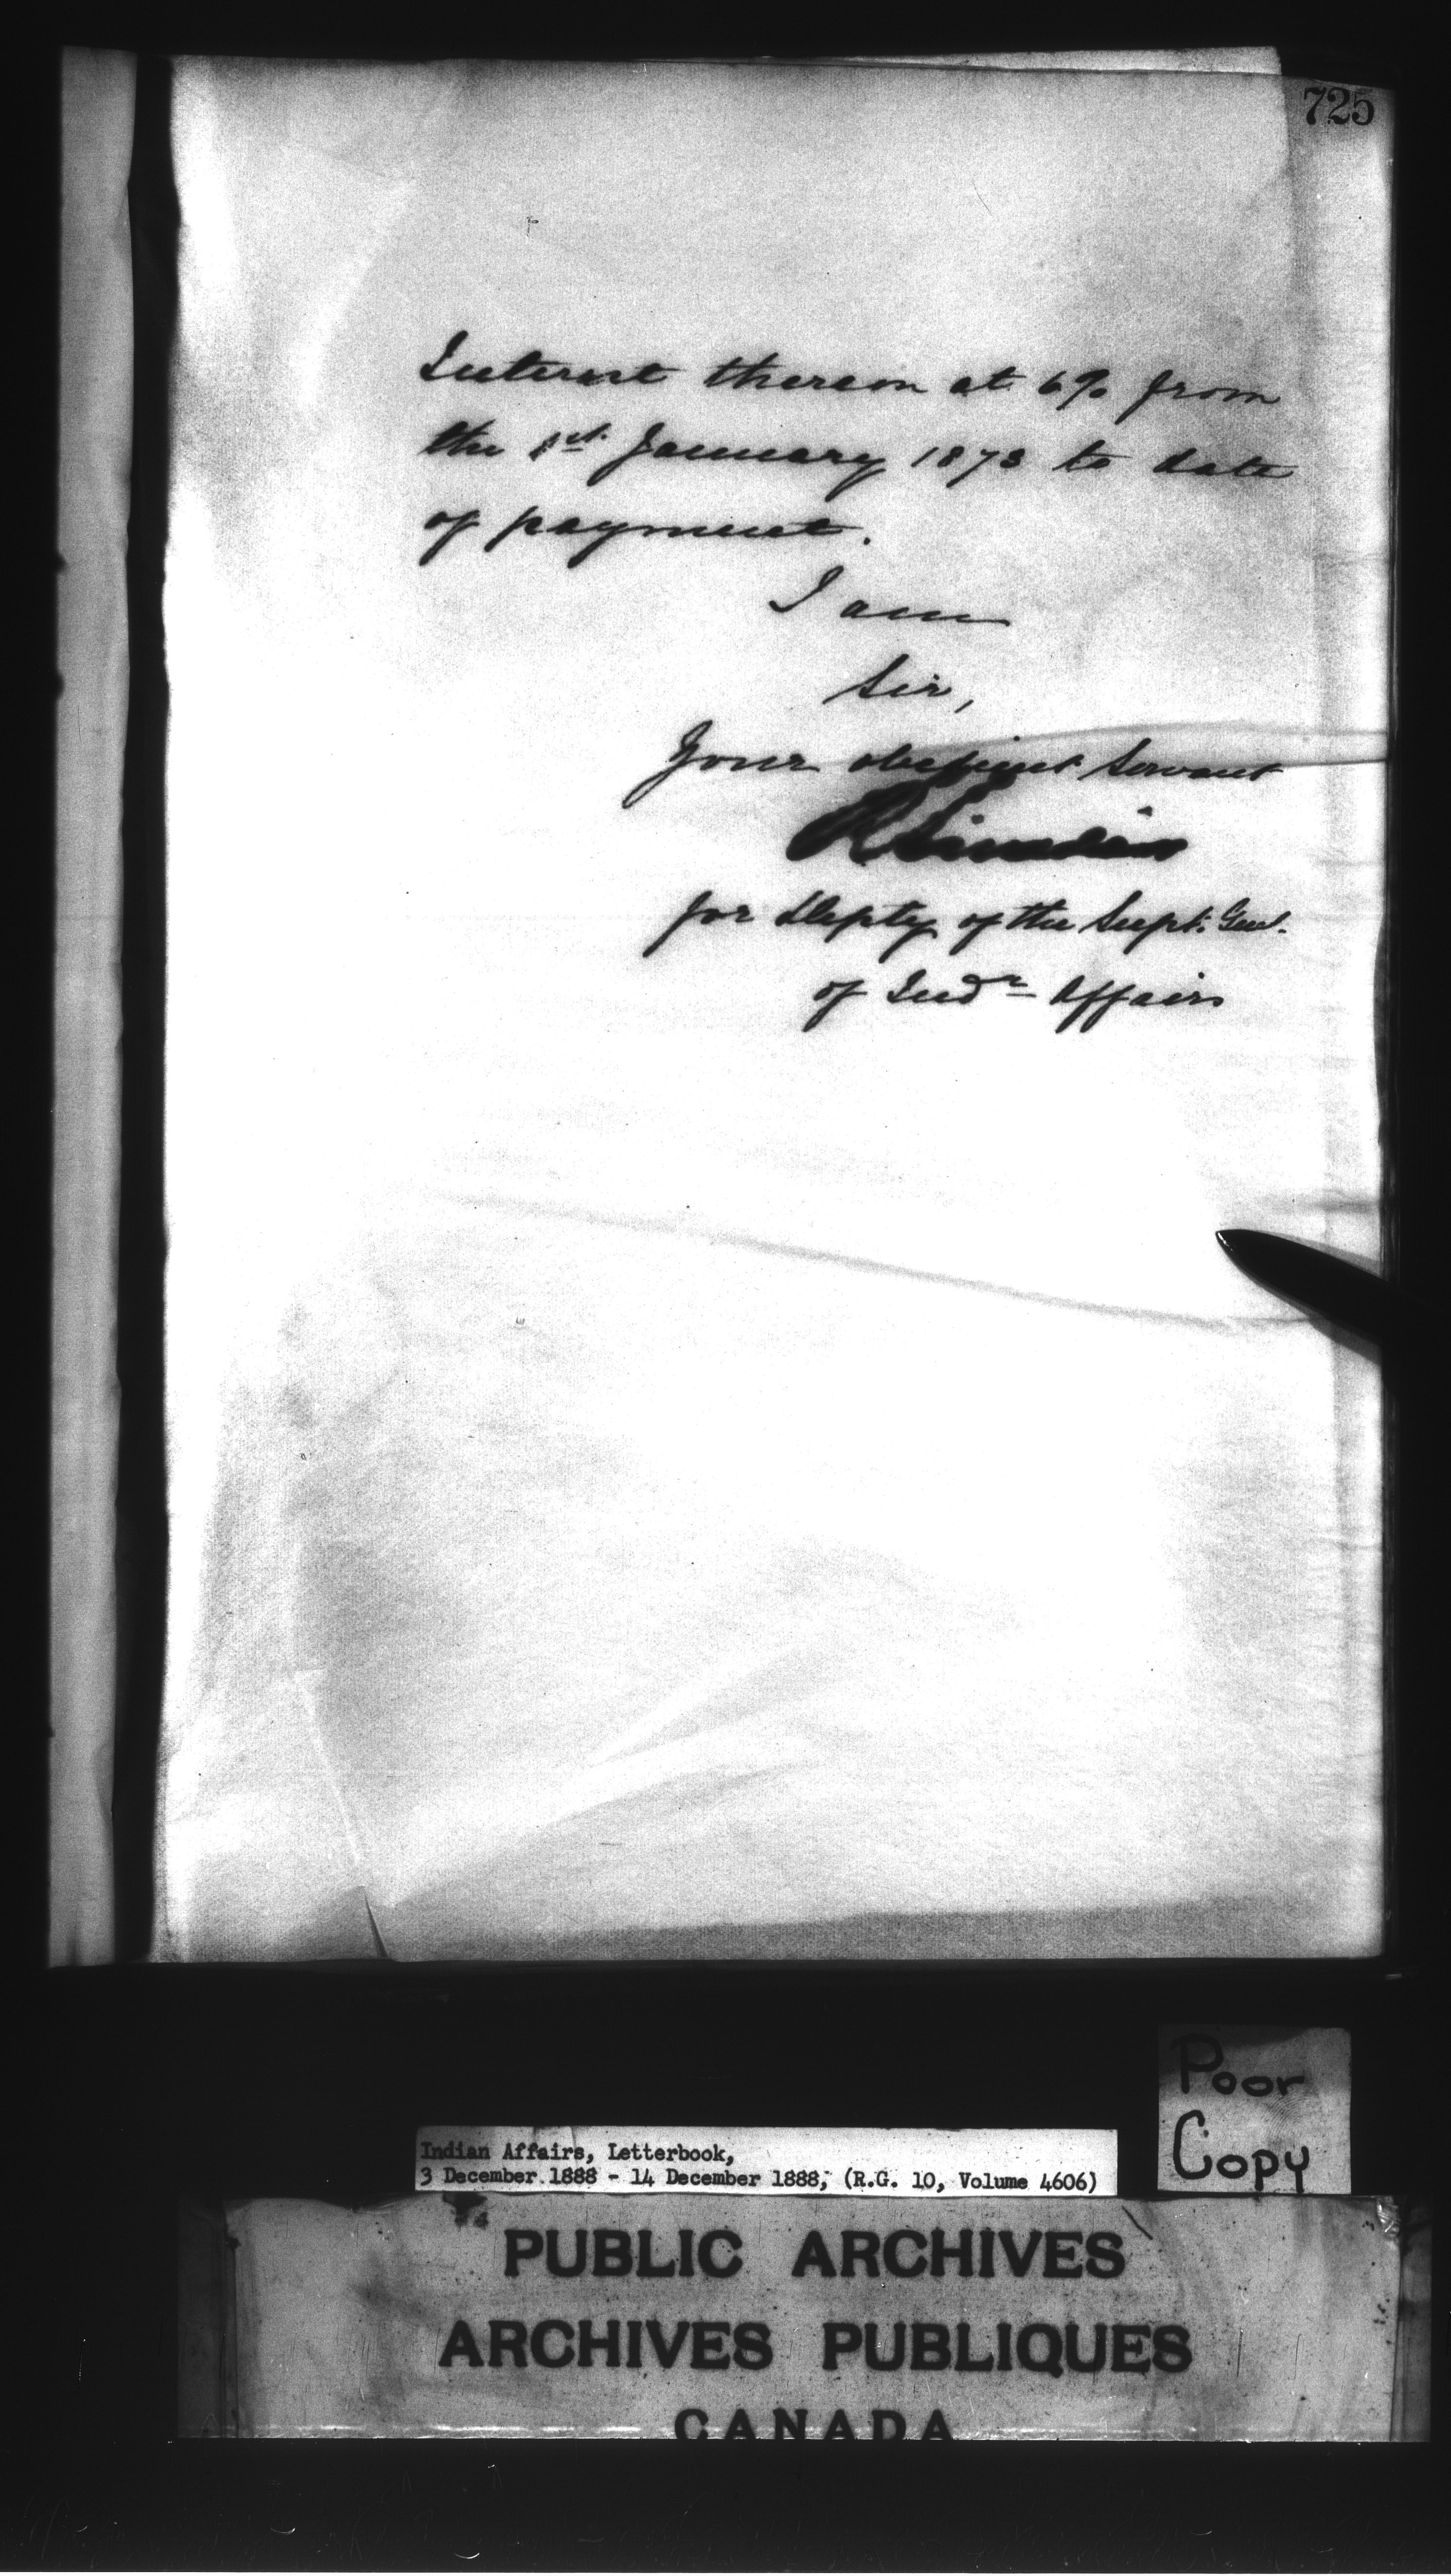 725
Interest thereon at 6% from
the 1st. January 1873 to date
of payment.
I am
Sir,
Your obedient Servant
R Sinclair
for Depty of the Supt. Genl.
of Indn Affairs
Poor
Copy
Indian Affairs, Letterbook,
3 December 1888 - 14 December 1888, (R.G. 10, Volume 4606)
PUBLIC ARCHIVES
ARCHIVES PUBLIQUES
CANADA